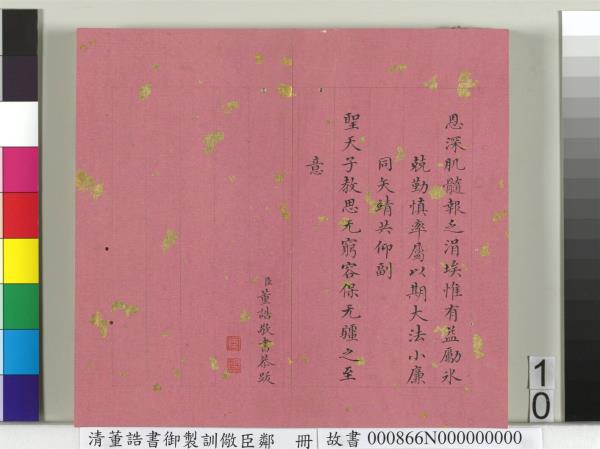 恩深肌髓報乏涓埃惟有益勵冰
兢勤慎率屬以期大法小廉
同矢靖共仰副
聖天子教思无窮容保无疆之至
意
臣董誥敬書恭跋
10
清董誥書御製訓儆臣鄰 冊
故書 000866N000000000